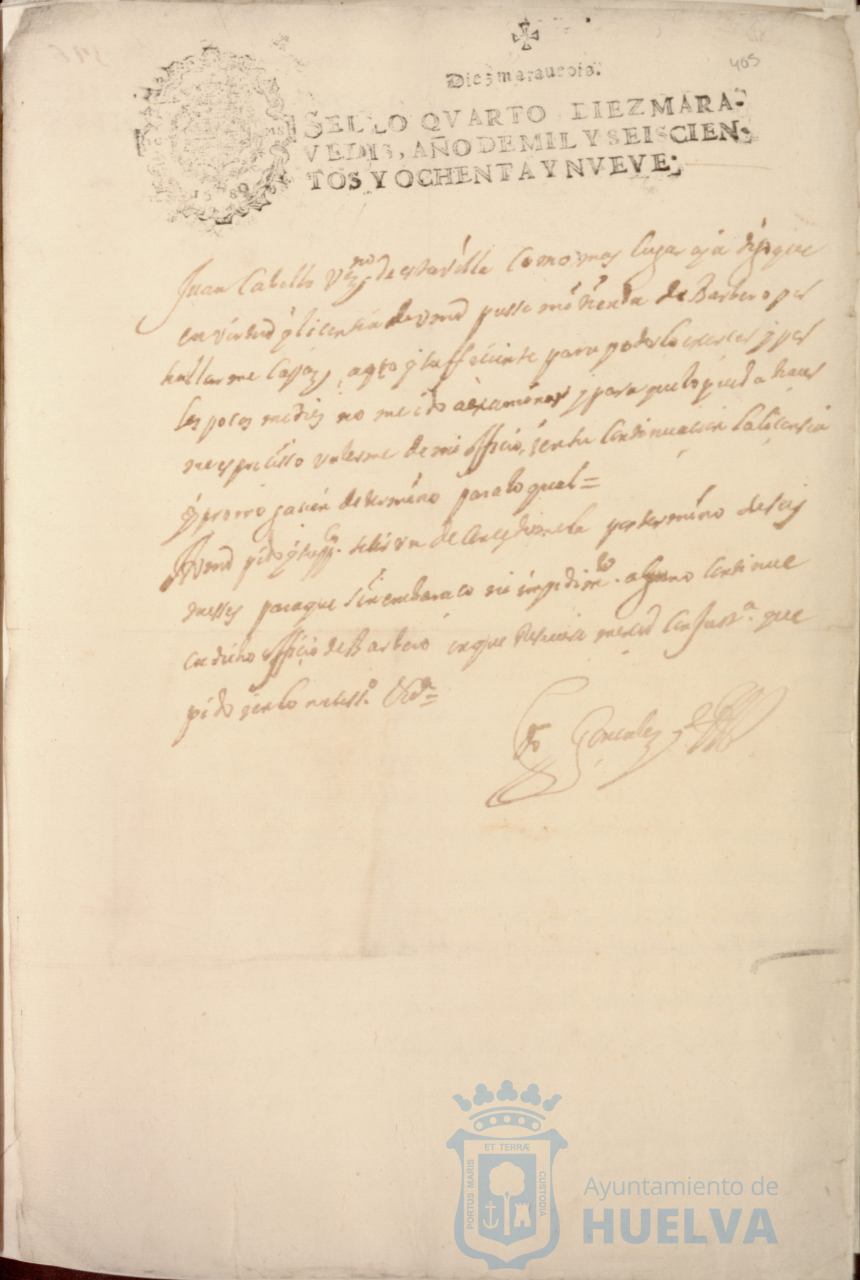 465
Diez maravedis.
SELLO QVARTO, DIEZ MARA-
VEDIS, AÑO DE MIL Y SEISCIEN-
TOS Y OCHENTA Y NVEVE.
1689
Juan Cabello vzno de esta villa como mas lugar aja digo que
en virtud y licensia de vmd pusse mi tienda de Barbero por
hallarme capaz, apto y sufficiente para poderlo exerser y por
los pocos medios no me e ido a examinar y para que lo pueda haser
me es presisso valerme de mi officio, en su continuacion la licensia
y prorrogasion de termino para lo qual=
A vmd pido y suppco se sirva de consedermela por termino de seis
messes para que sin embaraco ni impedimto alguno continue
en dicho officio de Barbero en que resevire merced con Justa que
pido en lo nesesso &=
Gonsales
ET TERRÆ
PORTUS MARIS
CUSTODIA
Ayuntamiento de
HUELVA